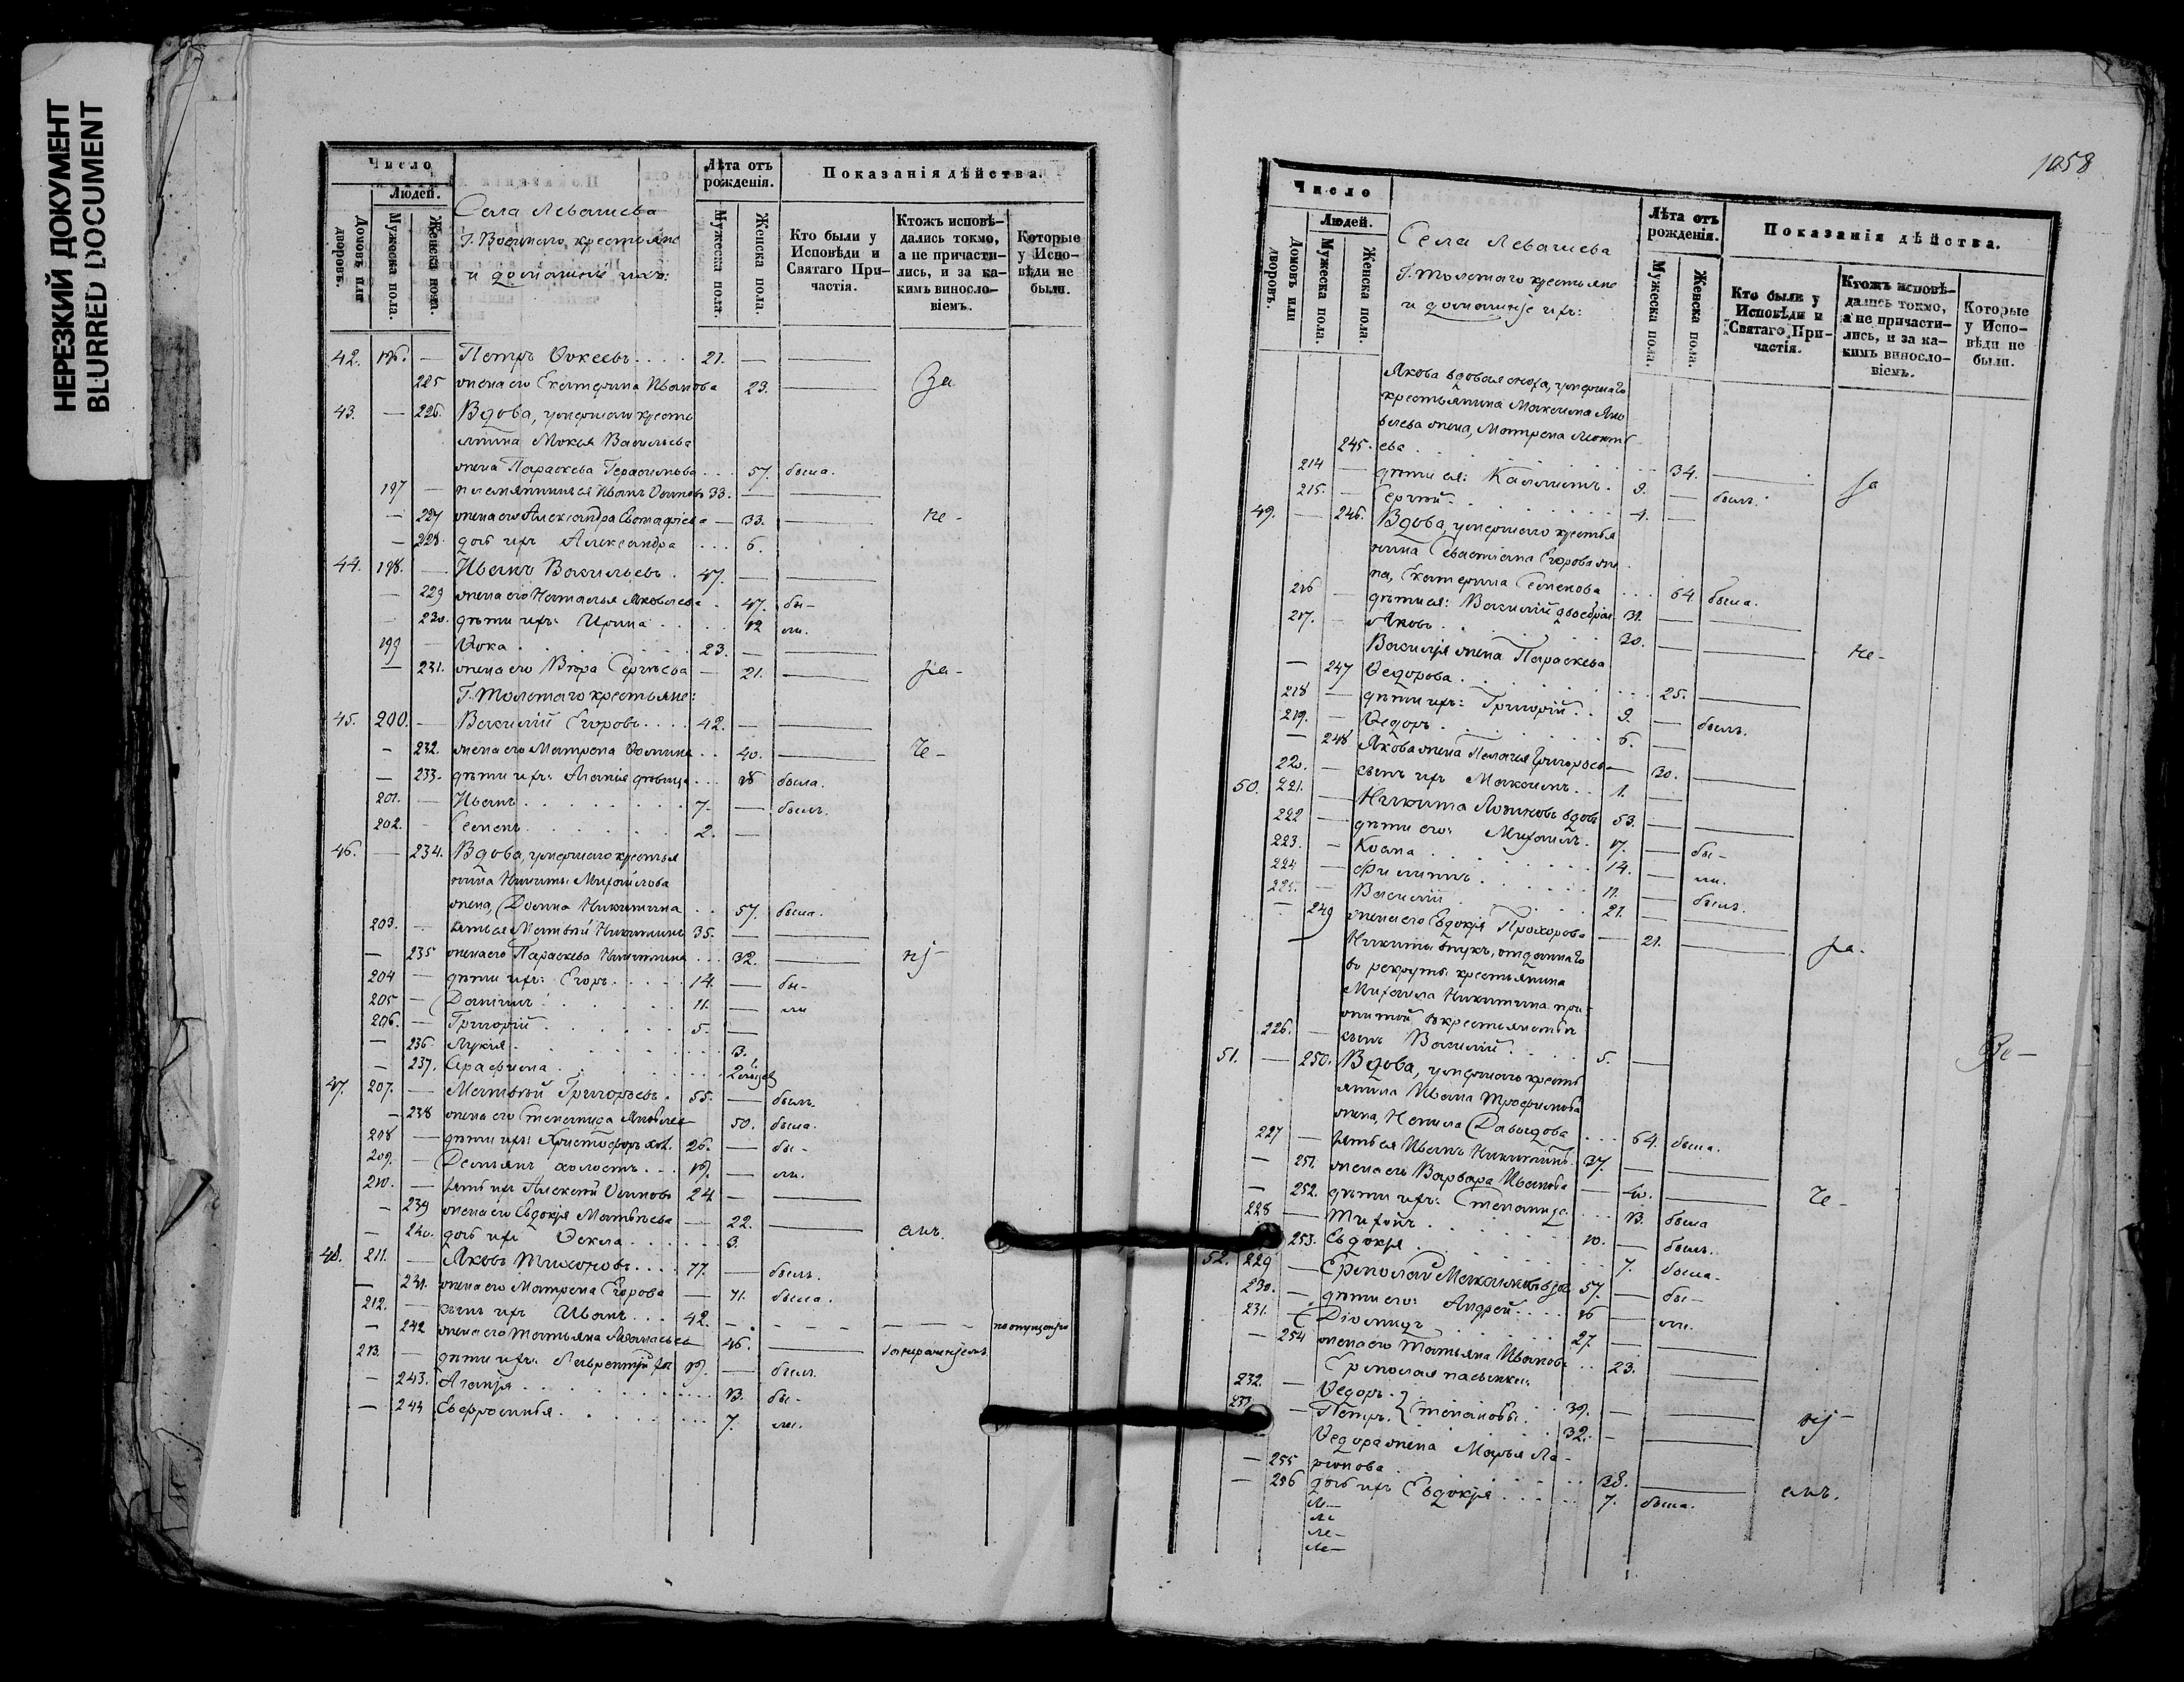 НЕРЕЗКИЙ ДОКУМЕНТ
BLURRED DOCUMENT
Число
Людей.
Домовъ или дворовъ.
Мужеска пола.
Женска пола.
Села Левашева
Г. Воейкова, крестьяне
и домашніе ихъ:
Лѣта отъ рожденія.
Мужеска пола.
Женска пола.
Показанія дѣйства.
Кто были у Исповѣди и Святаго Причастія.
Ктожъ исповѣдались токмо, а не причастились, и за какимъ винословіемъ.
Которые у Исповѣди не были.
42. 196. — Петръ Ѳокеевъ 21. —
225 жена его Екатерина Иванова 23. За
43. — 226. Вдова, умершаго кресть
янина Мокея Васильева
жена Параскева Герасимова 57. была.
197 — племянникъ ея Иванъ Осиповъ 33. —
— 227 жена его Александра Евстафіева — 33. не-
— 228. дочь ихъ Александра 6.
44. 198. — Иванъ Васильевъ. 47. —
— 229 жена его Наталья Яковлева 47. бы-
— 230. дѣти ихъ: Ирина 12 ли.
199 — Ѳока 23. —
— 231. жена его Вѣра Сергѣева — 21. ра-
Г. Толстаго крестьяне:
45. 200. — Василій Егоровъ 42. —
— 232. жена его Матрена Ѳомина 40. че-
— 233. дѣти ихъ: Агафія дѣвица 18 была.
201. — Иванъ 7. — былъ.
202. — Семенъ 2. —
46. — 234. Вдова, умершаго крестья
нина Никиты Михайлова
жена, Домна Никитина 57. была.
203. — зять ея Матвѣй Никитинъ 35. —
— 235 жена его Параскева Никитина 32. ні-
204 — дѣти ихъ: Егоръ 14. — бы-
205 — Даніилъ 11. — ли
206. — Григорій 5. —
— 236 Лукія 3.
— 237. Серафима
47. 207. — Матвѣй Григорьевъ. 55. — былъ.
— 238 жена его Степанида Яковлева 50. была.
208 — дѣти ихъ: Христофоръ хол. 26. — бы-
209. — Демьянъ холостъ 19. — ли.
210. — зять ихъ Алексѣй Осиповъ 24 —
— 239 жена его Евдокія Матвѣева — 22. емъ.
— 240. дочь ихъ Ѳекла 3.
48. 211. — Яковъ Тихоновъ 77. — былъ.
— 241. жена его Матрена Егорова — 71. была.
212. — сынъ ихъ Иванъ 42. — по опущенію
— 242 жена его Татьяна — 46.
213. — дѣти ихъ: Лаврентій 19. — былъ.
— 243. Агафія 13. бы-
— 244 Евфросинья 7. ли.
1058
Число
Людей.
Домовъ или дворовъ.
Мужеска пола.
Женска пола.
Села Левашева
Г. Толстаго крестьяне
и домашніе ихъ:
Лѣта отъ рожденія.
Мужеска пола.
Женска пола.
Показанія дѣйства.
Кто были у Исповѣди и Святаго Причастія.
Ктожъ исповѣдались токмо, а не причастились, и за какимъ винословіемъ.
Которые у Исповѣди не были.
Якова вдовая сноха, умершаго
крестьянина Максима Яко
влева жена, Матрена
245. ева 34. За
214 — дѣти ея: Каллистъ 9. — былъ.
215. — Сергѣй 4. —
49. — 246. Вдова, умершаго крестья
нина Севастіана Егорова же
на, Екатерина Семенова 64 была.
216 — дѣти ея: Василій двоебрач. 31. —
217. — Яковъ 30. — не-
Василія жена Параскева
— 247 Ѳедорова 25.
218 — дѣти ихъ: Григорій 9. — былъ.
219. — Ѳедоръ 6. —
— 248 Якова жена Пелагія Григорьева — 30.
220. — сынъ ихъ Максимъ 1. —
50. 221. — Никита Логиновъ вдовъ 53. —
222 — дѣти его: Михаилъ. 17. — бы-
223. — Козма 14. — ли.
224 — Филиппъ 11. — былъ.
225. — Василій 21. —
— 249 жена его Евдокія Прохорова — 21. ра-
Никиты внукъ, отданнаго
въ рекруты крестьянина
Михаила Никитина при-
житой въ крестьянствѣ
226. — сынъ Василій 5. —
51. — 250. Вдова, умершаго кресть
янина Ивана Трофимова
жена, Ненила Давыдова 64. была.
227 — зять ея Иванъ Никитинъ. 37. —
— 251. жена его Варвара Иванова — 40. че-
— 252. дѣти ихъ: Степанида 13. была
228 — Тихонъ 10. — былъ.
253. Евдокія 7. была.
52. 229 — Ермолай Максимовъ вдов. 57. — бы-
230. — дѣти его: Андрей 16 — ли.
231. — Діомидъ 27. —
— 254 жена его Татьяна Иванова 23.
Ермолая пасынки:
232. — Ѳедоръ 39. —
233. — Петръ. } Степановы. 32. — ні-
Ѳедора жена Марья Ла-
— 255 ріонова 38.
— 256 дочь ихъ Евдокія 7. была. емъ.